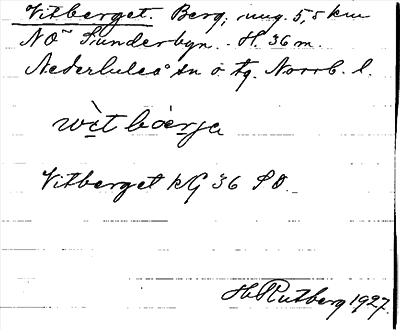 Vitberget. Berg, ung. 5,5 km
NO Sunderbyn. H. 36 m.
Nederluleå sn o tg. Norrb. l.
wìt bàrja
Vitberget kG 36 SO.
H. Rutberg 1927.